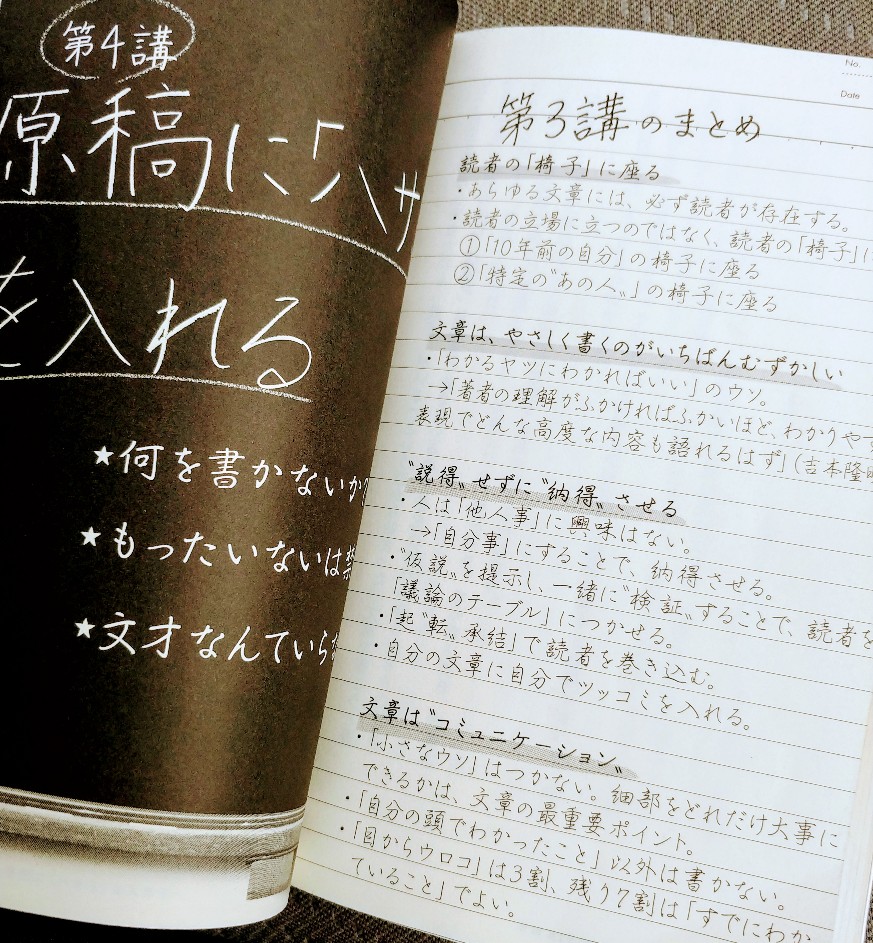 第4講
原稿に「ハサ
を入れる
★何を書かないか
★もったいないは禁
★文才なんていら
No.
Date
第3講のまとめ
読者の「椅子」に座る
・あらゆる文章には、必ず読者が存在する。
・読者の立場に立つのではなく、読者の「椅子」に
①「10年前の自分」の椅子に座る
②「特定の〝あの人〟」の椅子に座る
文章は、やさしく書くのがいちばんむずかしい
・「わかるヤツにわかればいい」のウソ。
→「著者の理解がふかければふかいほど、わかりやす
表現でどんな高度な内容も語れるはず」(吉本隆
〝説得〟せずに〝納得〟させる
・人は「他人事」に興味はない。
→「自分事」にすることで、納得させる。
・〝仮説〟を提示し、一緒に〝検証〟することで、読者を
「議論のテーブル」につかせる。
・「起〝転〟承結」で読者を巻き込む。
・自分の文章に自分でツッコミを入れる。
文章は〝コミュニケーション〟
・「小さなウソ」はつかない。細部をどれだけ大事に
できるかは、文章の最重要ポイント。
・「自分の頭でわかったこと」以外は書かない。
・「目からウロコ」は3割、残り7割は「すでにわか
ていること」でよい。